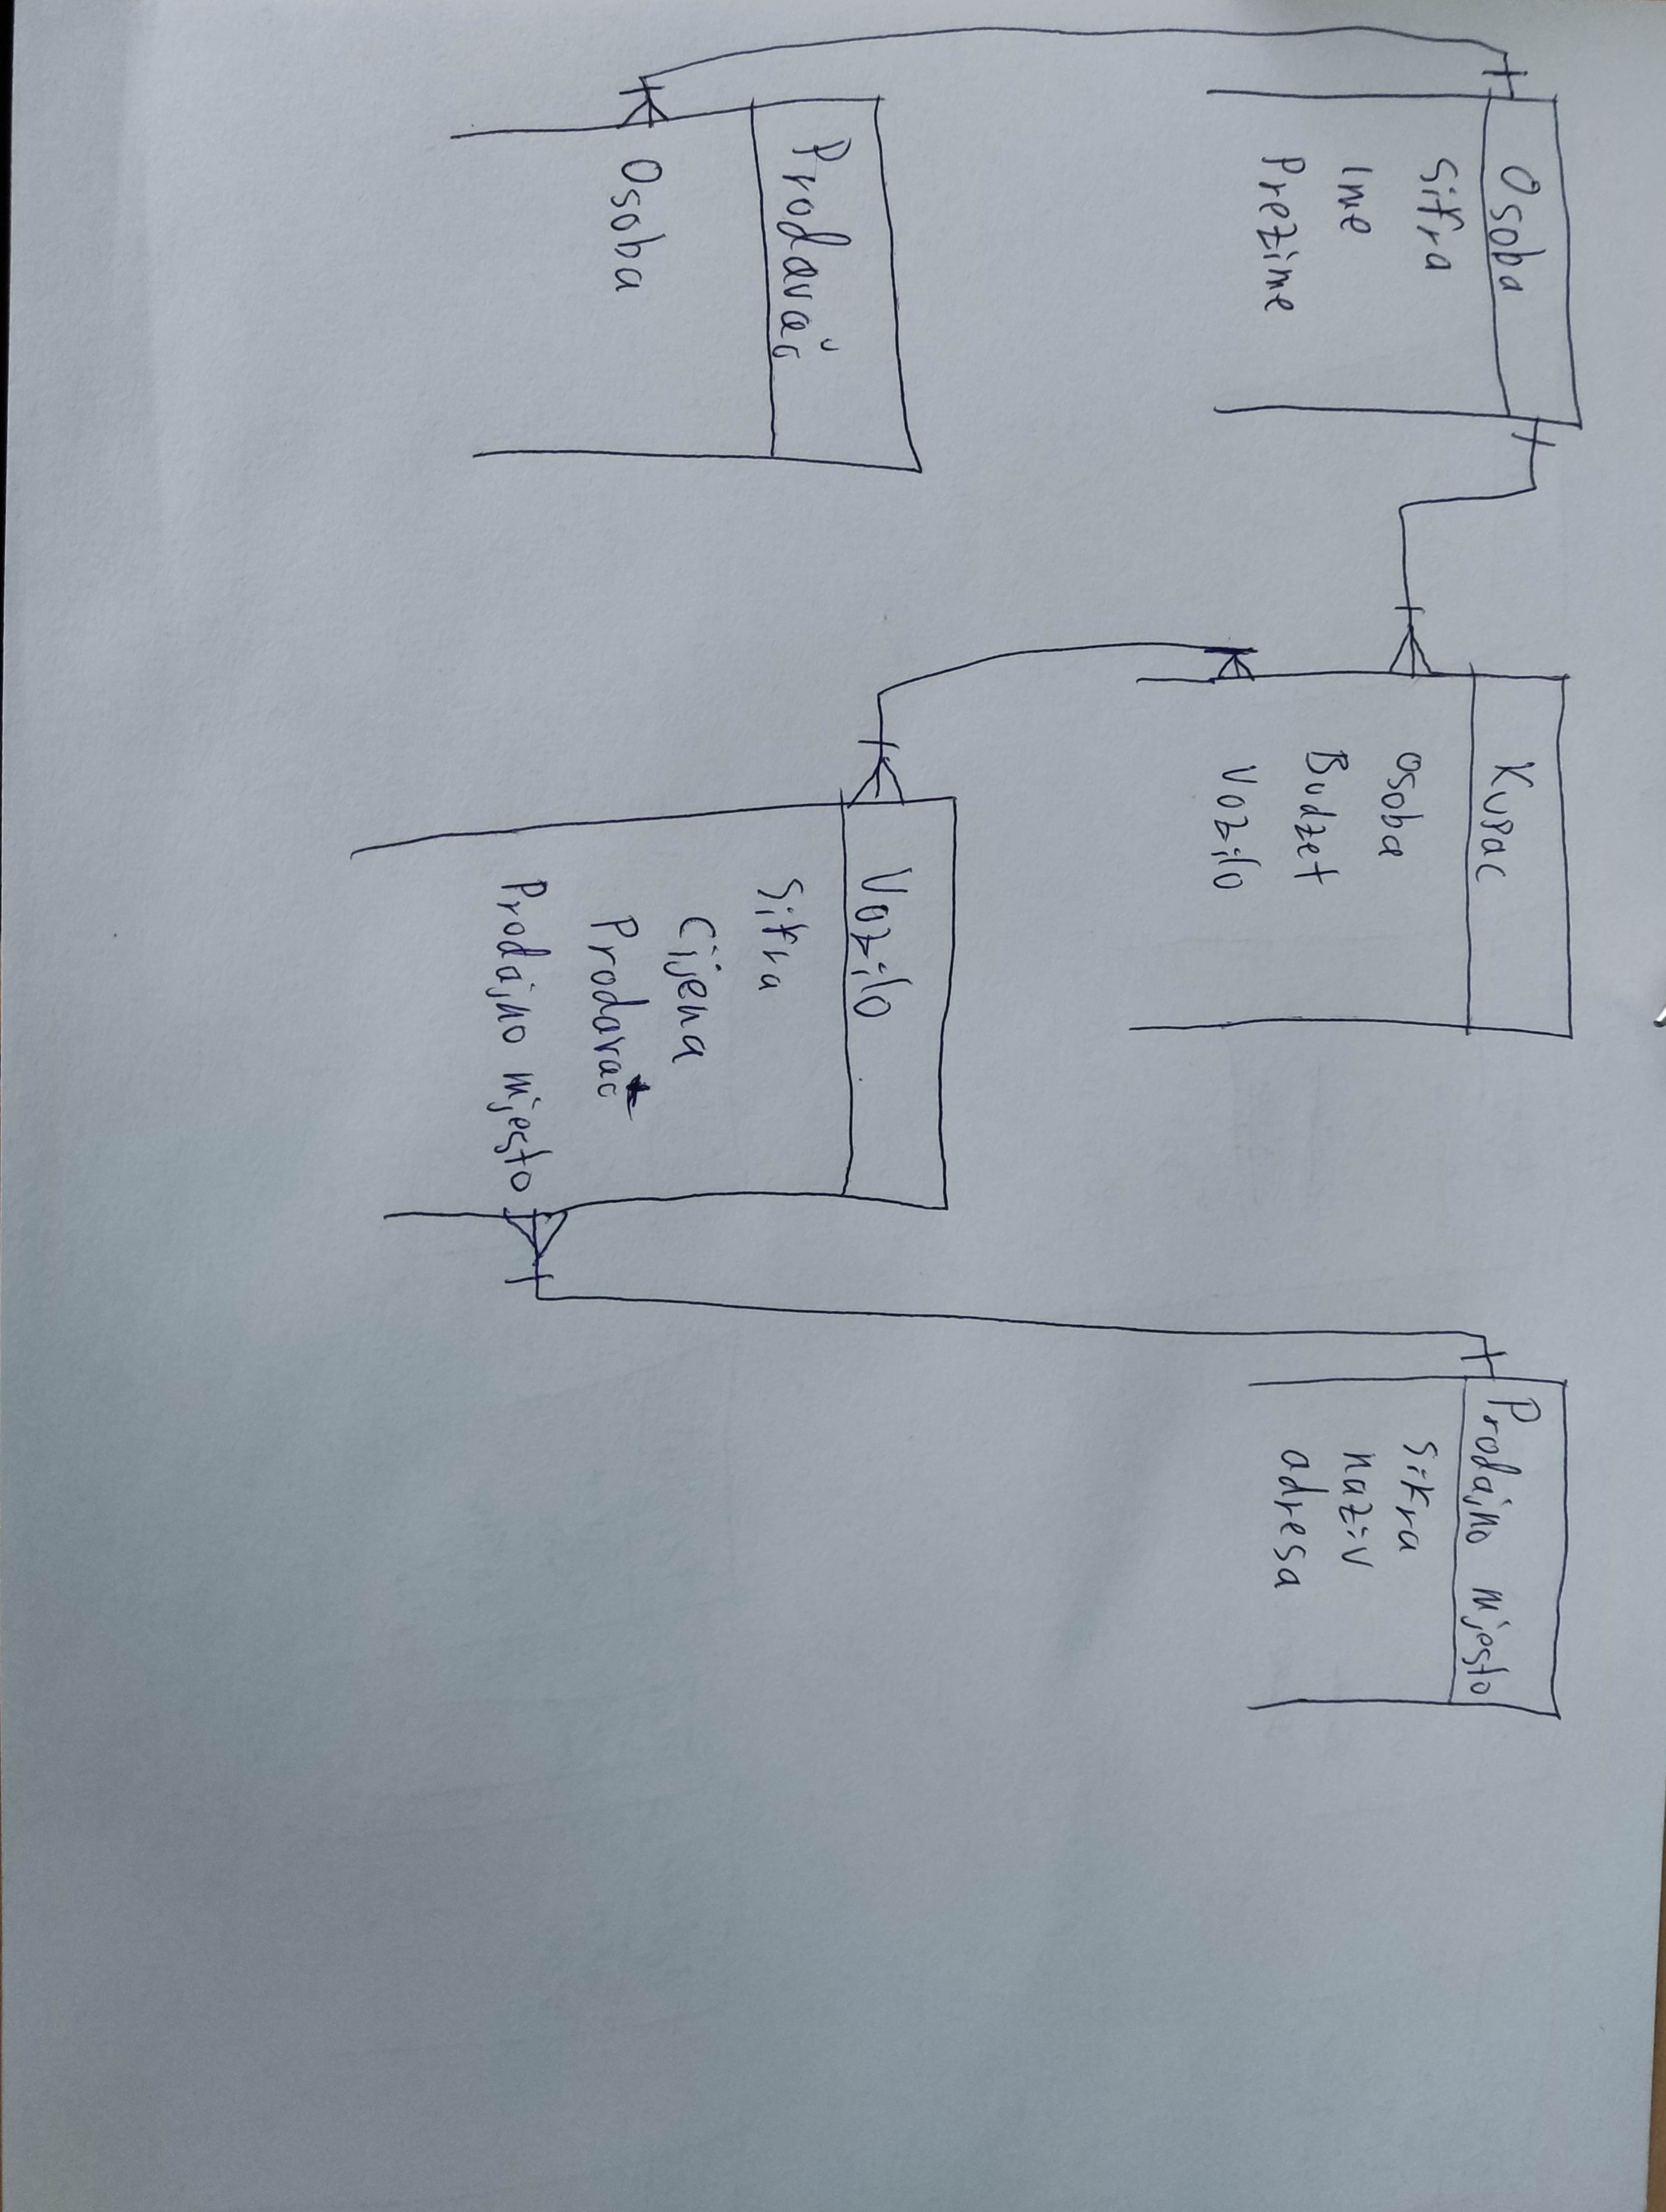 Osoba
Sifra
Ime
Prezime
Kupac
Osoba
Budzet
Vozilo
Prodajno mjesto
Sifra
naziv
adresa
Prodavač
Osoba
Vozilo
Sifra
Cijena
Prodavač
Prodajno mjesto